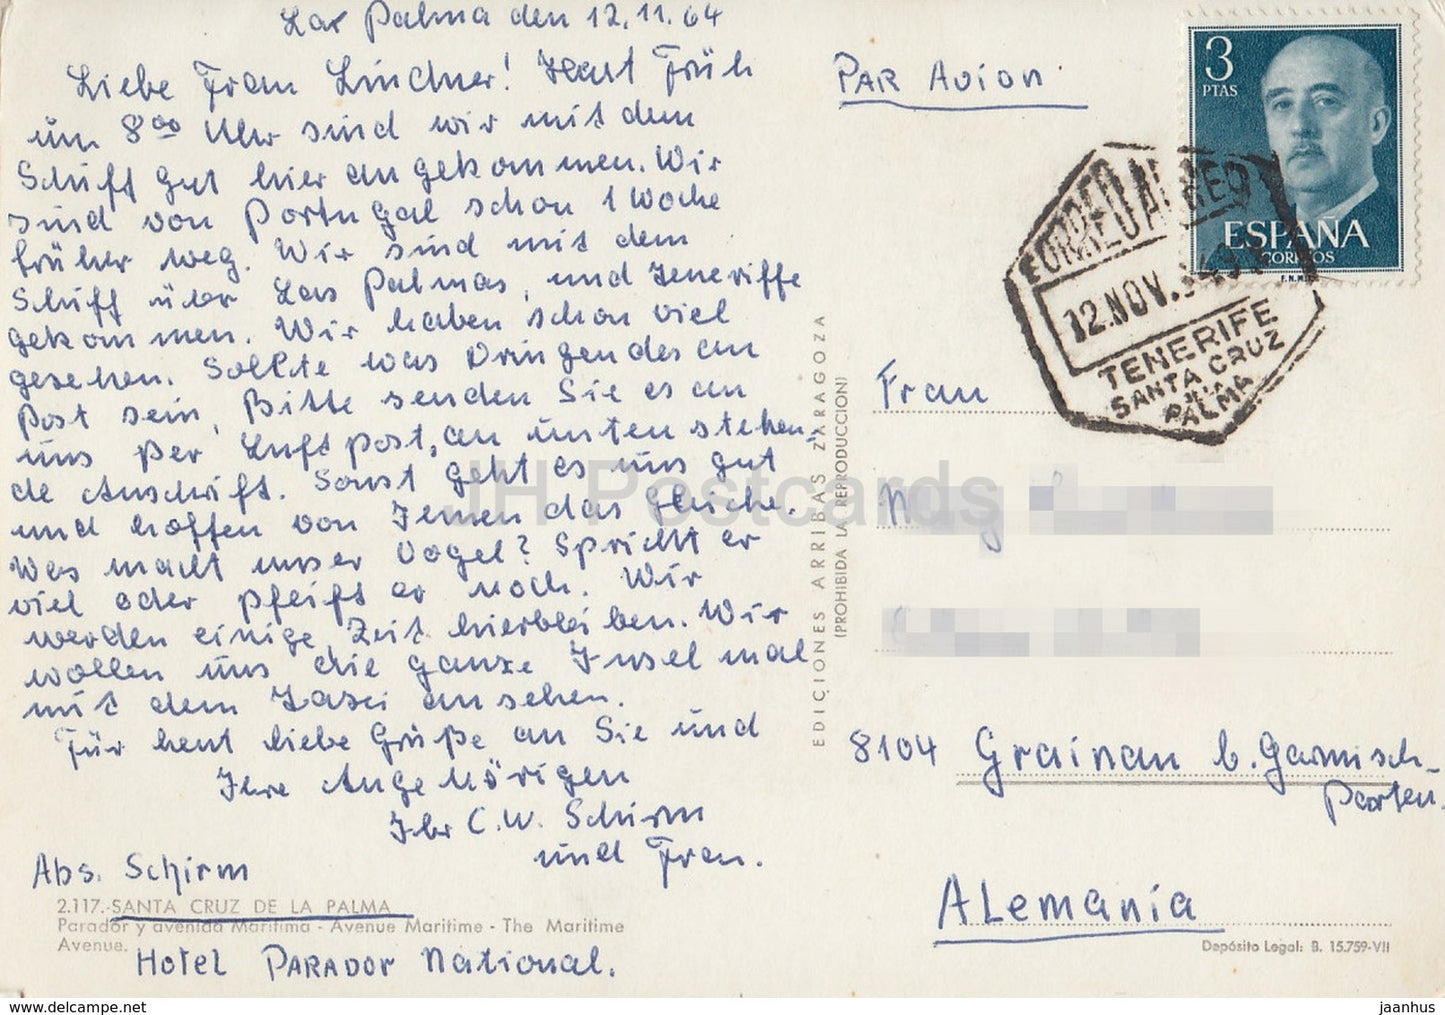 Las Palma den 12.11.64
Liebe Frau Lindner! Heut Früh
um 8⁰⁰ Uhr sind wir mit dem
Schiff gut hier angekommen. Wir
sind von Portugal schon 1 Woche
früher weg. Wir sind mit dem
Schiff über Las Palmas, und Teneriffe
gekommen. Wir haben schon viel
gesehen. Sollte was Dringendes an
Post sein, Bitte senden Sie es an
uns per Luftpost, an unten stehen-
de Anschrift. Sonst geht es uns gut
und hoffen von Ihnen das Gleiche.
Was macht unser Vogel? Spricht er
viel oder pfeift er noch. Wir
werden einige Zeit hierbleiben. Wir
wollen uns die ganze Insel mal
mit dem Taxi ansehen.
Für heut liebe Grüße an Sie und
Ihre Angehörigen
Ihr C.W. Schirm
und Frau.
Abs. Schirm
2.117.-SANTA CRUZ DE LA PALMA
Parador y avenida Marítima - Avenue Maritime - The Maritime
Avenue.
Hotel PARADOR National.
EDICIONES ARRIBAS ZARAGOZA
(PROHIBIDA LA REPRODUCCION)
PAR AVION
3
PTAS
ESPAÑA
CORREOS
F.N.M.T.
CORREO AEREO
12.NOV.
TENERIFE
SANTA CRUZ
DE LA
PALMA
Frau
8104 Grainau b. Garmisch-
Parten.
ALemanía
Depósito Legal: B. 15.759-VII
IH Postcards
www.delcampe.net
jaanhus